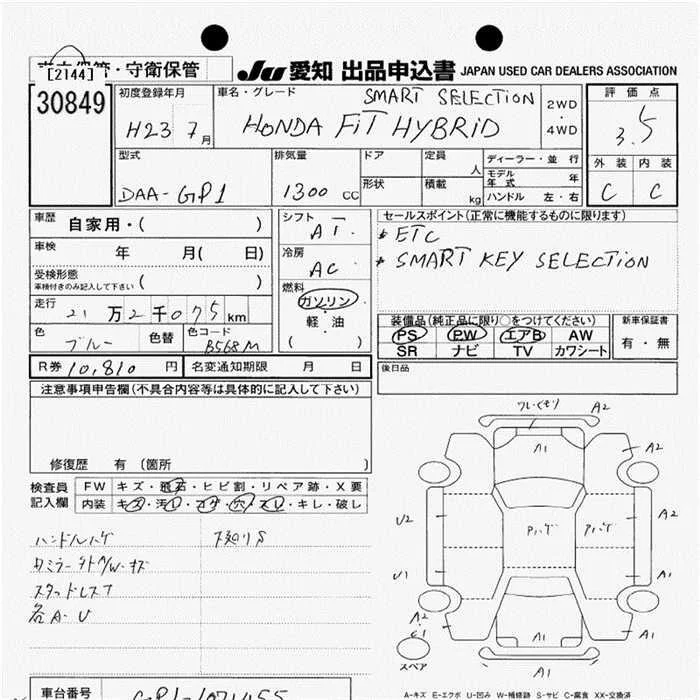 車立保管・守衛保管
[2144]
30849
Ju 愛知 出品申込書 JAPAN USED CAR DEALERS ASSOCIATION
初度登録年月
H23 7月
車名・グレード
SMART SELECTION
HONDA FiT HYBRiD
2WD
・
4WD
評価点
3.5
外装 内装
C C
型式
DAA-GP1
排気量
1300 cc
ドア
形状
定員
人
積載
kg
ディーラー・並行
モデル年式 年
ハンドル 左・右
車歴 自家用・( )
車検 年 月( 日)
受検形態
車検付きのみ記入して下さい ( )
走行
21万2千075km
色 ブルー 色替 色コード B568M
シフト
AT
冷房
AC
燃料
ガソリン
・
軽・油
( )
セールスポイント(正常に機能するものに限ります)
* ETC
* SMART KEY SELECTiON
装備品(純正品に限り○をつけてください)
PS PW エアB AW
SR ナビ TV カワシート
新車保証書
有・無
R券 10,810 円 名変通知期限 月 日
後日品
注意事項申告欄(不具合内容等は具体的に記入して下さい)
修復歴 有(箇所 )
検査員
記入欄
FW キズ・飛石・ヒビ割・リペア跡・X要
内装 キズ・汚レ・コゲ・穴・スレ・キレ・破レ
ハンドルハゲ
下廻りS
タミラー外カバー・キズ
スタッドレス
各A・U
ワレ・くもり
A2
A1
A2
U2
Pハゲ
Pハゲ
A2
U1
A1
A2
C1
A1
A1
スペア
A1
A-キズ E-エクボ U-凹み W-補修跡 S-サビ C-腐食 XX-交換済
車台番号
GP1-1071455